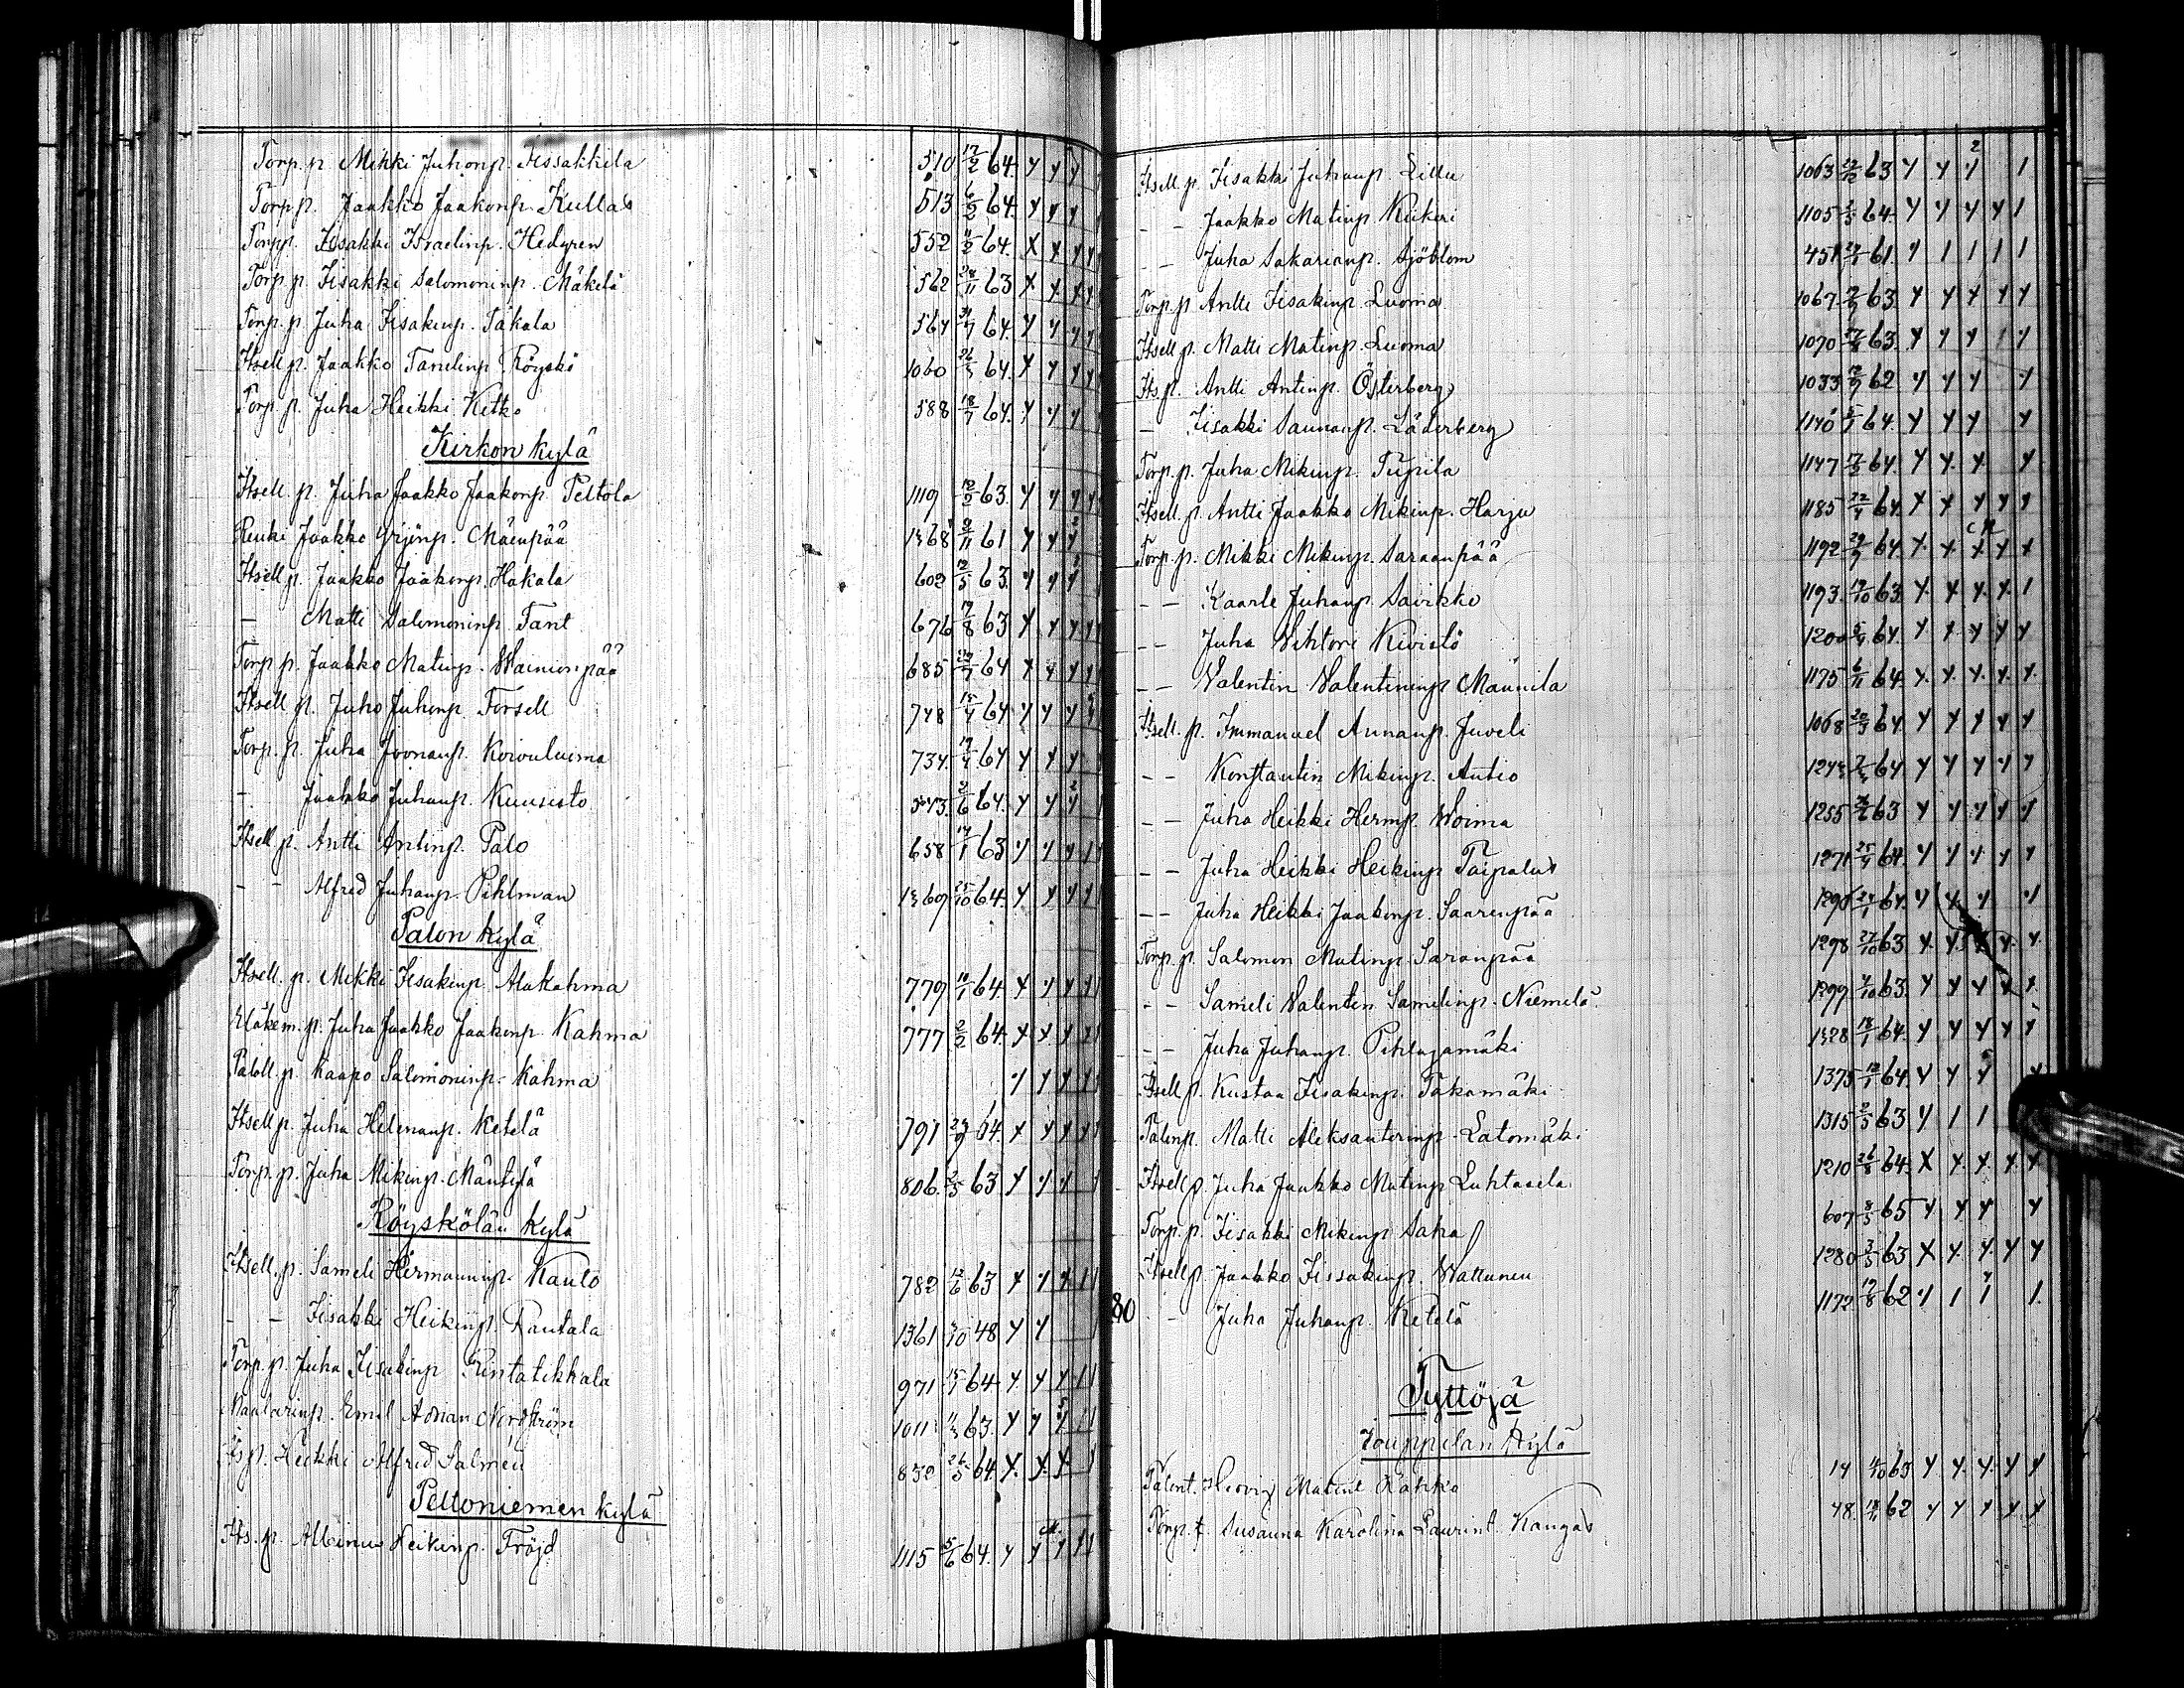 Torp. p. Mikki Juhonp. Iissakkila 510 12/2 64.
Torp. p. Jaakko Jaakonp. Kullas 513 6/2 64.
Torp. p. Iisakki Israelinp. Hedgren 552 11/2 64.
Torp. p. Iisakki Salomoninp. Mäkelä 562 28/11 63
Torp. p. Juha Iisakinp. Takala 564 64.
Itsell. p. Jaakko Tanelinp. Röyskö 1060 26/3 64.
Torp. p. Juha Heikki Ketko 588 18/7 64.
Kirkon kylä
Itsell. p. Juha Jaakko Jaakonp. Peltola 1119 12/2 63.
Renki Jaakko Yrjönp. Mäenpää 1368 9/11 61
Itsell. p. Jaakko Jaakonp. Hakala 602 12/5 63.
— Matti Salomoninp. Fant 676 19/8 63
Torp. p. Jaakko Matinp. Wainionpää 685 64
Itsell. p. Juho Juhonp. Forsell 748 15/4 64
Torp. p. Juha Joonanp. Koivuluoma 734. 19/4 64
— Jaakko Juhanp. Kuusisto 543. 2/6 64.
Itsell p. Antti Antinp. Palo 658 17/1 63
— — Alfred Juhanp. Pihlman 1369 25/10 64.
Palon kylä
Itsell. p. Mikki Iisakinp. Alakahma 779 10/1 64.
Eläkem. p. Juha Jaakko Jaakonp. Kahma 777 2/2 64.
Kaapo Salomoninp. Kahma
Itsell p. Juha Helenanp. Ketelä 791 29/9 64.
Torp. p. Juha Mikinp. Mäntylä 806. 2/5 63
Röyskölän kylä
Itsell. p. Sameli Hermanninp. Kauto 782 12/6 63
— — Iisakki Heikinp. Rautala 1361 48
Torp. p. Juha Iisakinp Rintatikkala 971 15/1 64.
Maalarinp. Emil Adrian Nordström 1011 63.
Its p. Heikki Alfred Salmén 830 26/5 64.
Peltoniemen kylä
Its. p. Albinus Heikinp. Fröjd 1115 5/6 64.
Itsell. p. Iisakki Juhanp. Lillu 1063 12/12 63
— — Jaakko Matinp. Kiikeri 1105 64.
— — Juha Sakarianp. Sjöblom 451 61.
Torp. p. Antti Iisakinp. Luoma 1067. 63.
Itsell p. Matti Matinp. Luoma 1070 63.
Its. p. Antti Antinp. Österberg 1033 12/9 62
— Iisakki Sannanp. Läderberg 1140 5/1 64.
Torp. p. Juha Mikinp. Tupila 1147 17/2 64.
Itsell. p. Antti Jaakko Mikinp. Harju 1185 22/4 64.
Torp. p. Mikki Mikinp. Saraanpää 1192 29/9 64.
— — Kaarle Juhanp. Savikko 1193. 19/10 63.
— — Juha Vihtori Kivistö 1200 64.
— — Valentin Valentininp. Maunula 1175 6/11 64.
Itsell. p. Immanuel Annanp. Juveli 1068 64
— — Konstantin Mikinp. Autio 1243 64
— — Juha Heikki Hermp. Woima 1255 63
— — Juha Heikki Heikinp. Taipalus 1271 25/4 64.
— — Juha Heikki Jaakonp. Saarenpää 1296 24/1 64.
Torp. p. Salomon Matinp. Saranpää 1298 27/10 63
— — Sameli Valentin Samelinp. Niemelä 1299 4/10 63.
— — Juha Juhanp. Pihlajamäki 1328 18/1 64.
Itsell p. Kustaa Iisakinp. Takamäki 1375 12/1 64.
Talonp. Matti Aleksanterinp. Latomäki 1315 2/5 63
Itsell p. Juha Jaakko Matinp. Luhtasela 1210 26/8 64.
Torp. p. Iisakki Mikinp Saha 607 8/5 65
Itsell p. Jaakko Iissakinp. Wattunen 1280 3/5 63
80 — Juha Juhanp. Ketelä 1172 12/8 62
Tyttöjä
Kouppilan kylä
Talont. Hedvig Matint Rahko 14 63
Torp. t. Susanna Karolina Laurint. Kangas 48. 62